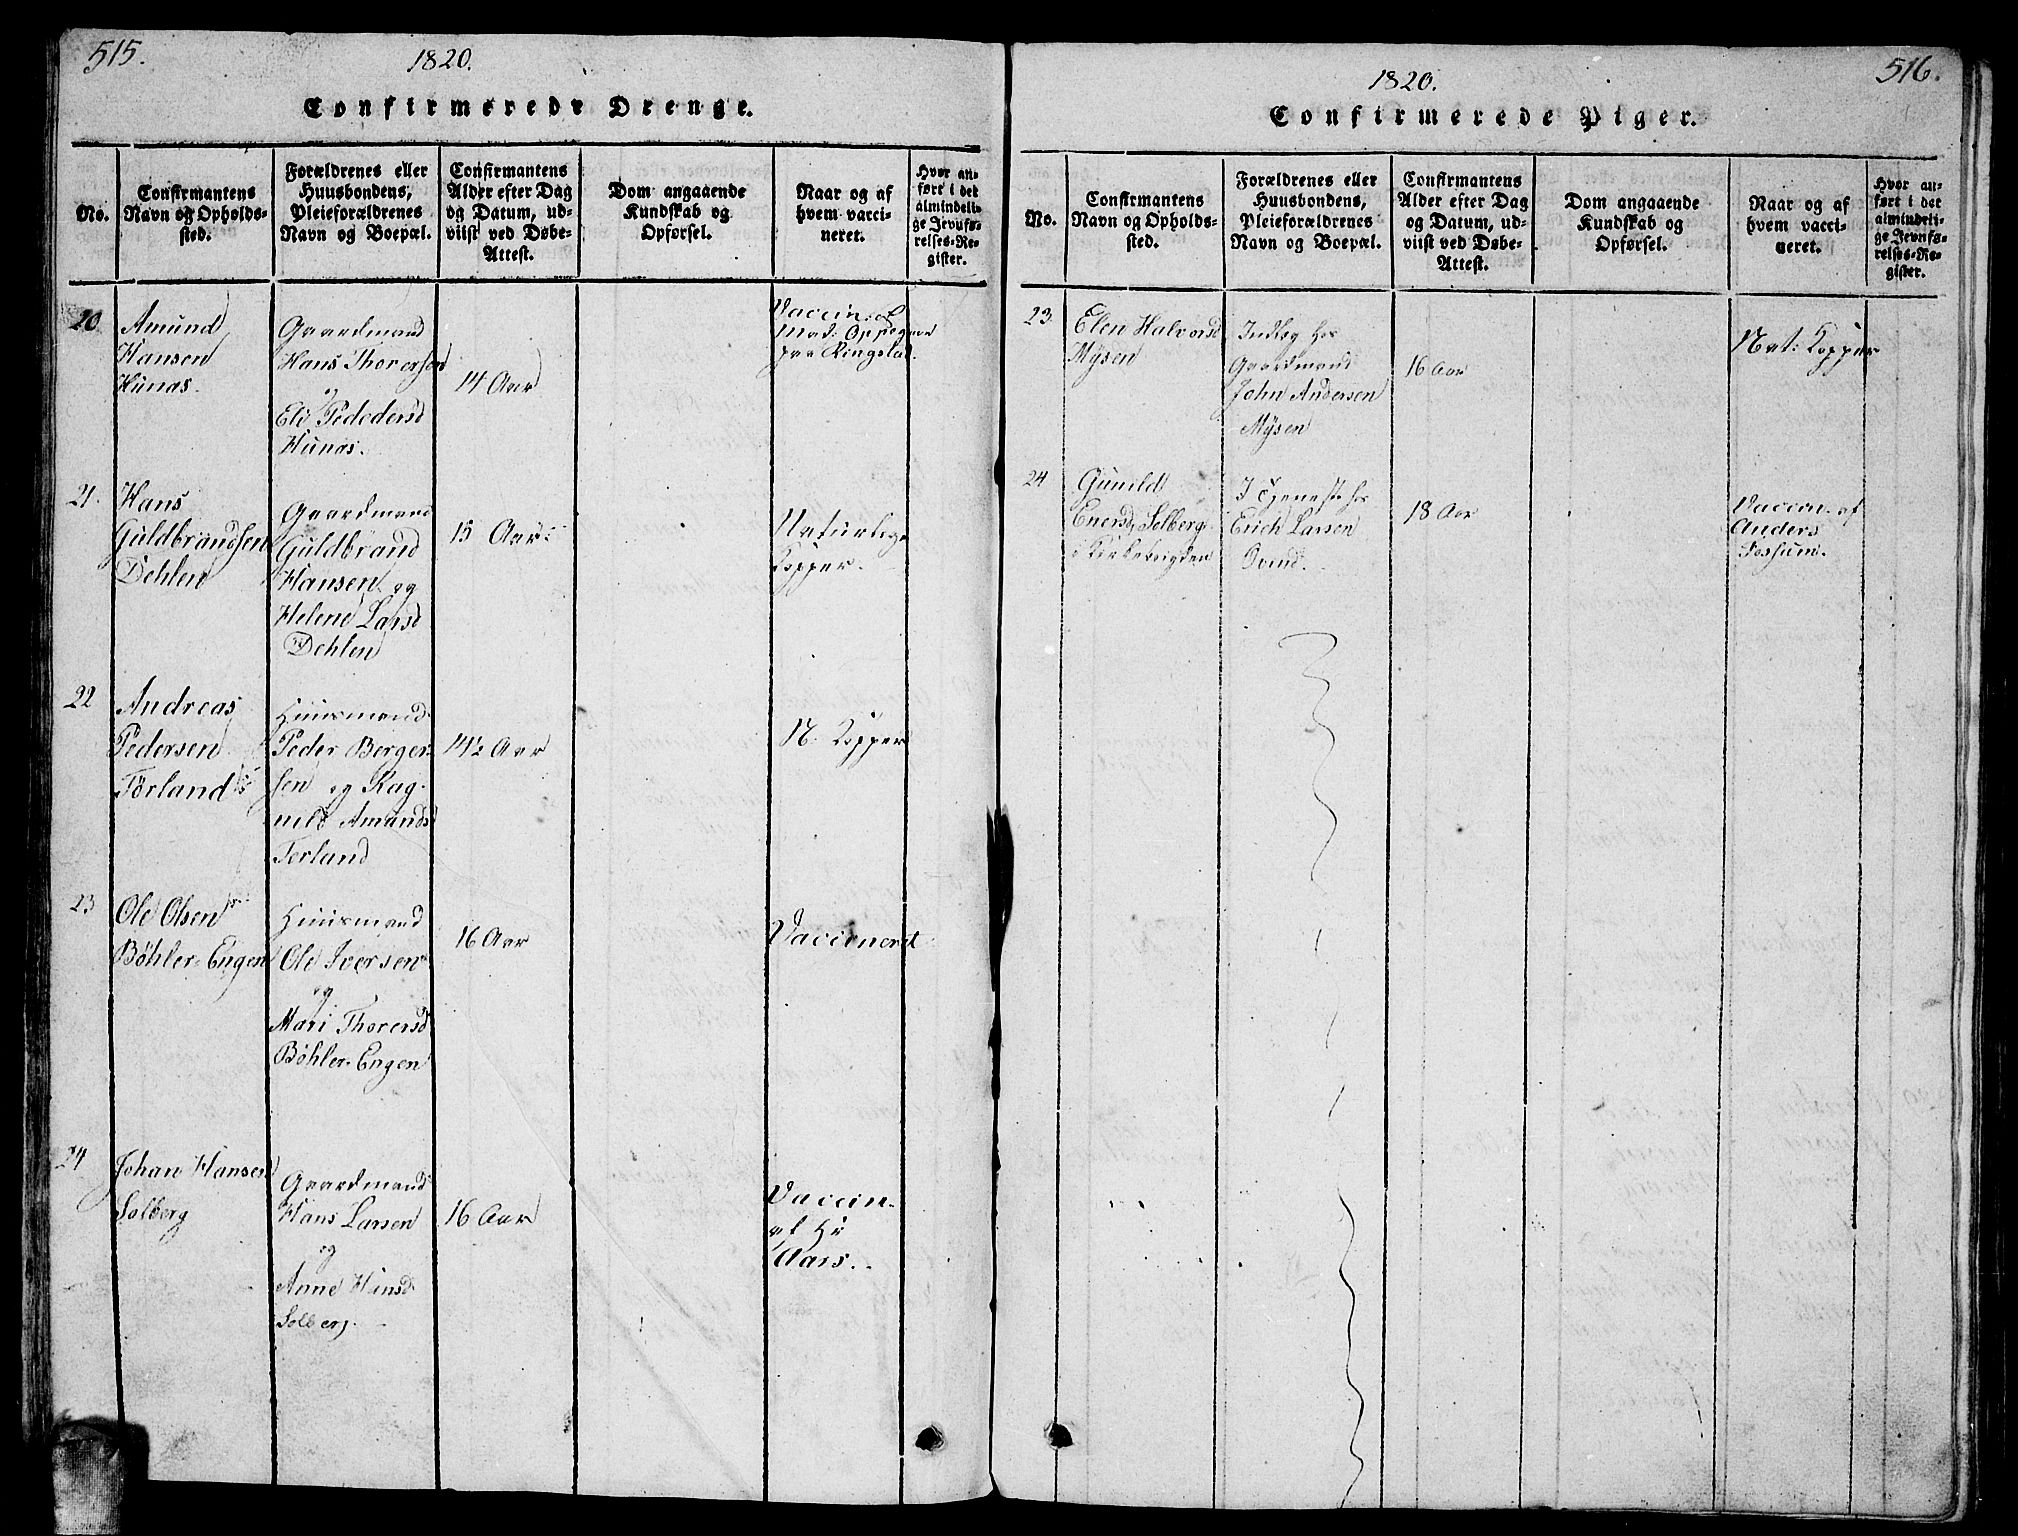 515.
1820.
Confirmerede Drenge.
No.
Confirmantens
Navn og Opholds-
sted.
Forældrenes eller
Huusbondens,
Pleieforældrenes
Navn og Boepæl.
Confirmantens
Alder efter Dag
og Datum, ud-
viist ved Døbe-
Attest.
Dom angaaende
Kundskab og
Opførsel.
Naar og af
hvem vacci-
neret.
Hvor an-
ført i det
almindeli-
ge Jevnfø-
relses-Re-
gister.
20
Amund
Hansen
Hunas.
Gaardmand
Hans Thorersen
og
Eli Pededersd
Hunas.
14 Aar
Vaccin: af
Mad: Oppegaar
paa Ringslud.
21.
Hans
Guldbrandsen
Dehlen
Gaardmand
Guldbrand
Hansen og
Helene Larsd
Dehlen
15 Aar
Naturlige
Kopper.
22
Andreas
Pedersen
Törland
Huusmand
Peder Berger-
sen og Rag-
nild Amunds
Terland
14½ Aar
N. Kopper
23
Ole Olsen
Böhler-Engen
Huusmand
Ole Iversen
og
Mari Thorersd
Böhler-Engen
16 Aar
Vaccineret
24
Johan Hansen
Solberg
Gaardmand
Hans Larsen
og
Anne Hansd
Solberg.
16 Aar
Vaccin.
af Hr
Aars.
516.
1820.
Confirmerede Piger.
No.
Confirmantens
Navn og Opholds-
sted.
Forældrenes eller
Huusbondens,
Pleieforældrenes
Navn og Boepæl.
Confirmantens
Alder efter Dag
og Datum, ud-
viist ved Døbe-
Attest.
Dom angaaende
Kundskab og
Opførsel.
Naar og af
hvem vacci-
neret.
Hvor an-
ført i det
almindeli-
ge Jevnfø-
relses-Re-
gister.
23.
Elen Halvorsd
Mÿsen
Indlag hos
Gaardmand
John Andersen
Mÿsen
16 Aar
Nat: Kopper
24
Guneld
Enersd Solberg
i Kirkebrigden
I Tjeneste hos
Erich Larsen
Ovind.
18 Aar
Vaccin. af
Anders
Fossum.